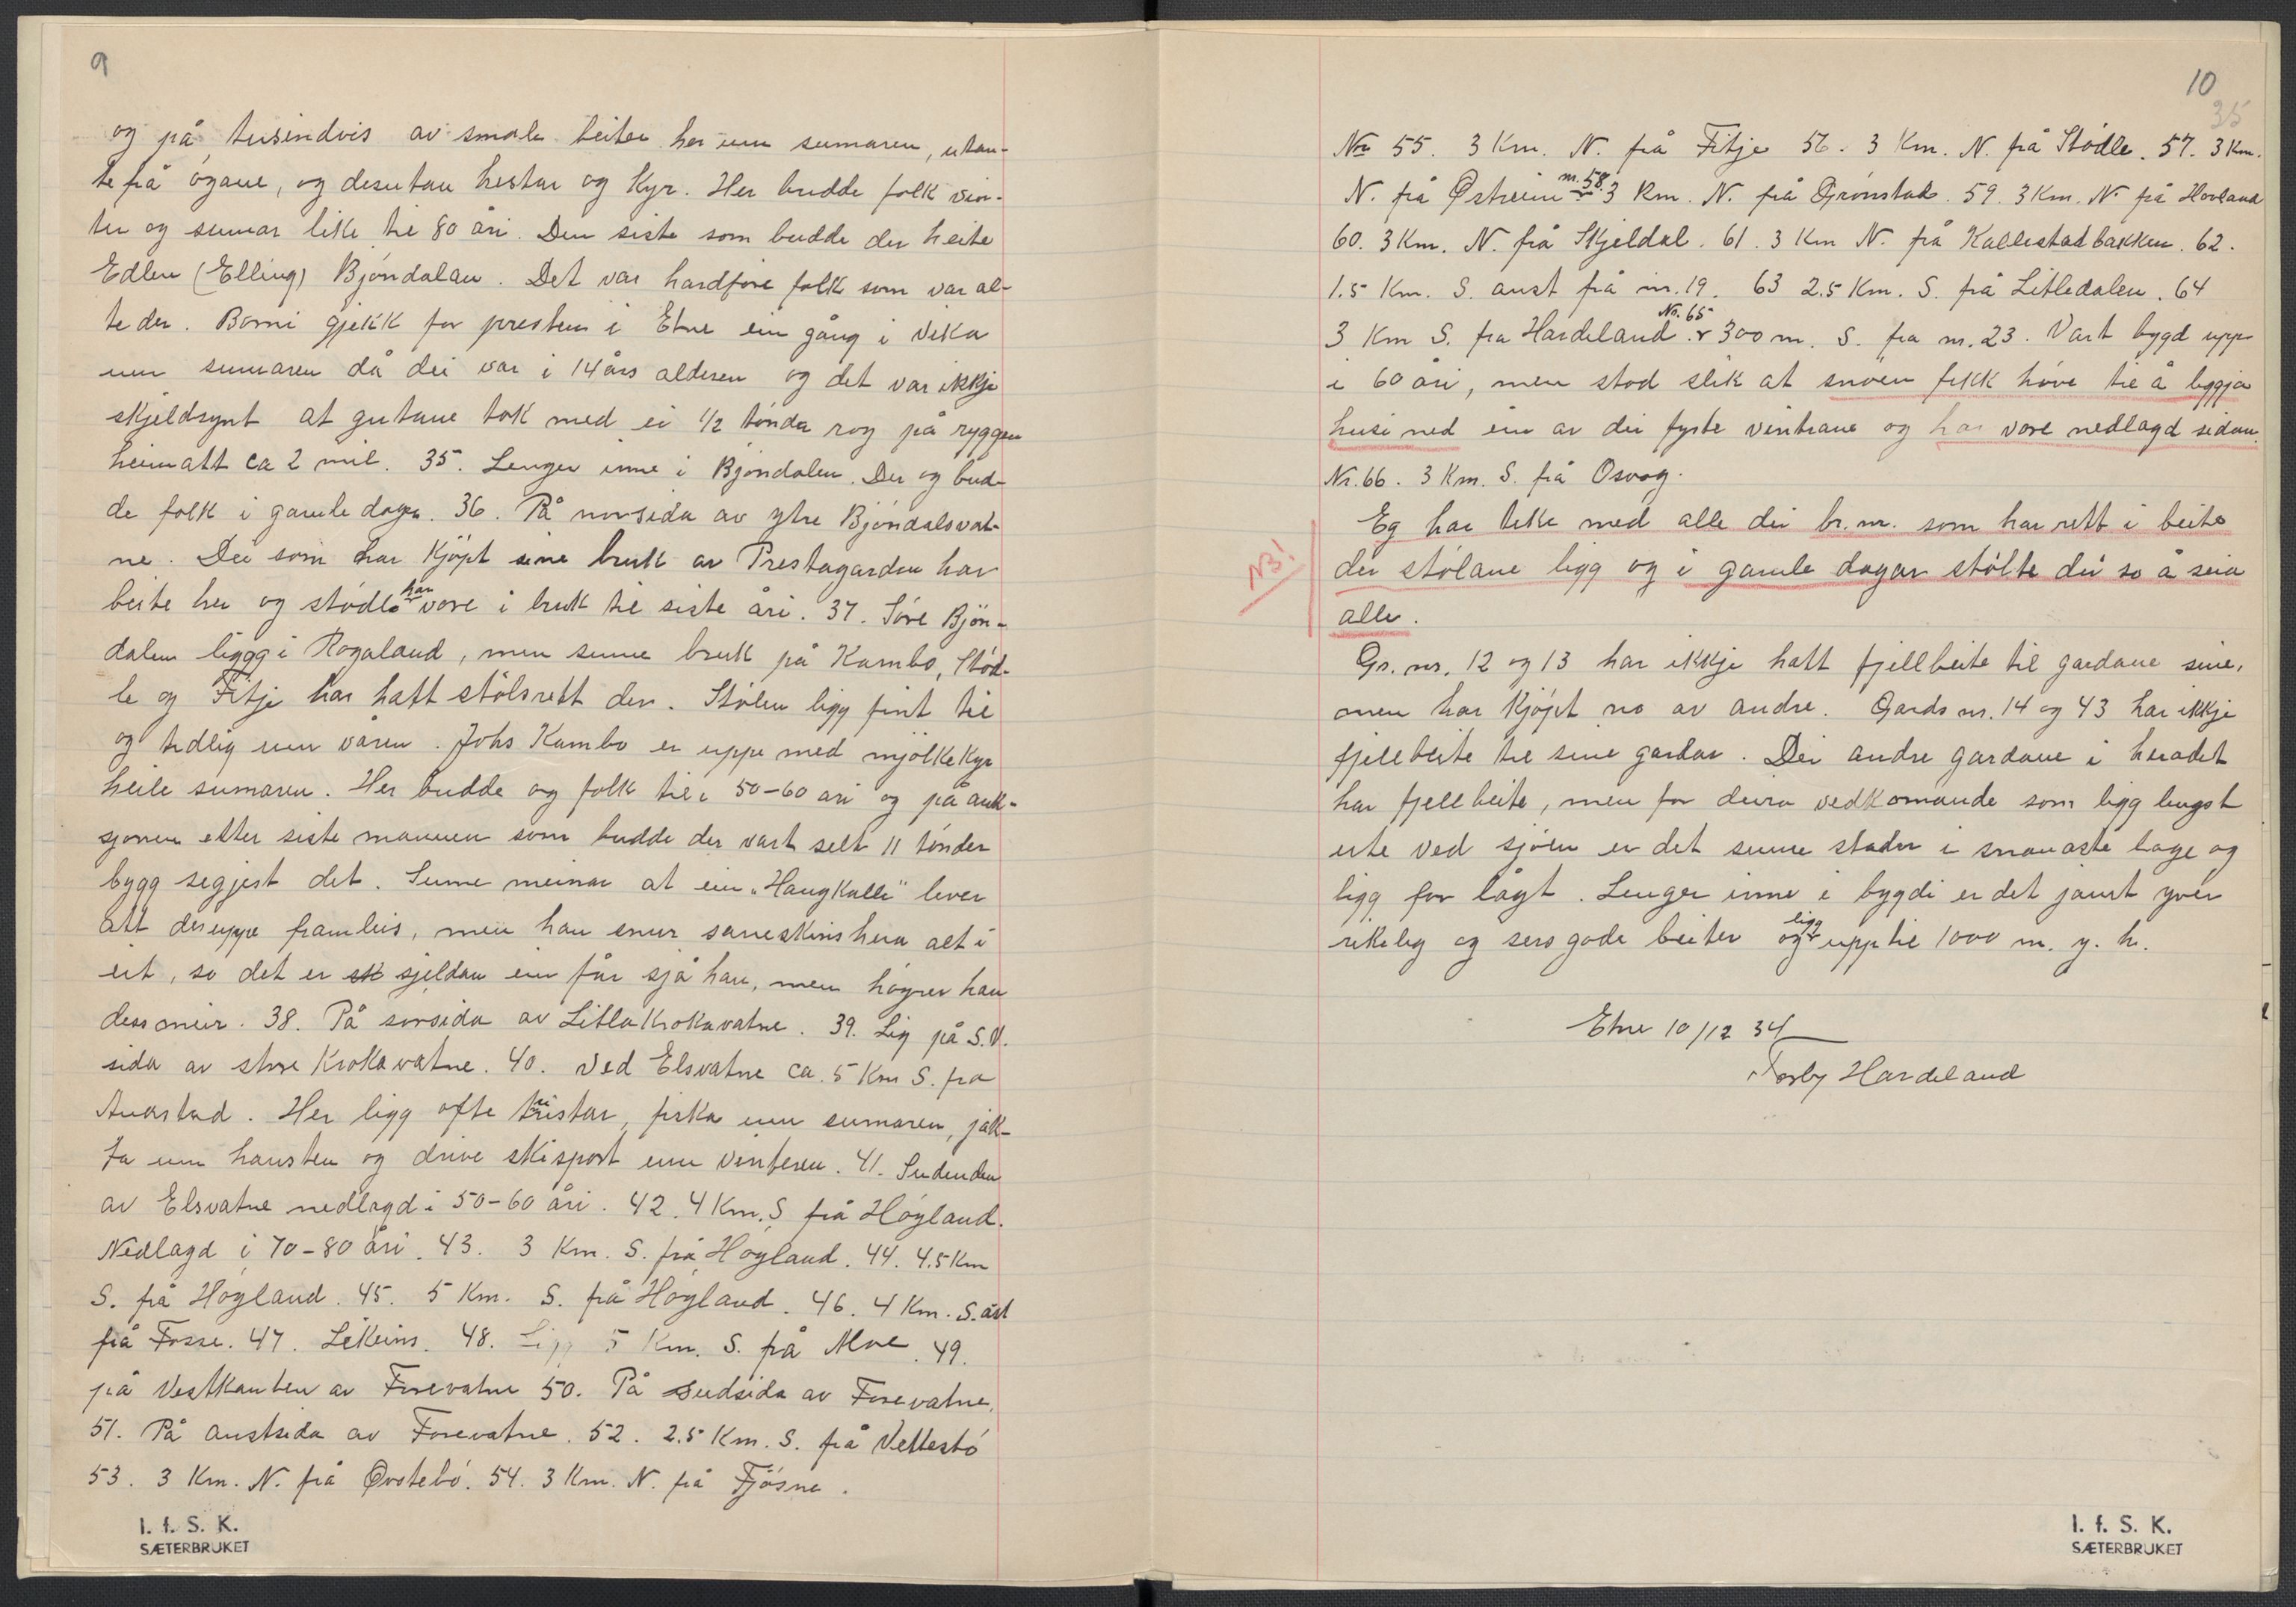 9
og på tusindvis av smale beiter her um sumaren, utan-
te frå øgane, og desutan hestar og Kyr. Her budde folk vin-
ter og sumar like til 80 åri. Den siste som budde der heite
Edlen (Elling) Bjöndalen. Det var hardföre folk som var al-
te der. Borni gjekk for presten i Etne ein gång i vika
um sumaren då dei var i 14 års alderen og det var ikkje
skjeldsynt at gutane tok med ei 1/2 tónda rog på ryggen
heimatt ca 2 mil. 35. Lenger inne i Bjöndalen. Der og bud-
de folk i gamle dagar. 36. På norsida av ytre Bjöndalsvat-
ne. Dei som har Kjöpt sine bruk av Prestagarden har
beite her og stódle har vore i bruk til siste åri. 37. Söre Bjön-
dalen liggg i Rogaland, men sume bruk på Kambo, Stöd-
le og Fitje har hatt stölsrett der. Stölen ligg fint til
og tidlig um våren. Johs Kambo er uppe med mjölkekyr
heile sumaren. Her budde og folk til i 50-60 åri og på auk-
sjonen etter siste mannen som budde der vart selt 11 tónder
bygg segjest det. Sume meinar at ein "Haugkalle" lever
att der uppe framleis, men han snur sauskinshua alt i
eit, so det er sjeldan ein får sjå han, men högrer han
dess meir. 38. På sorsida av Litlakrokavatne. 39. Lig på S.V.
sida av store Krokavatne. 40. Ved Elsvatne ca. 5 Km S. fra
Anarstad. Her ligg ofte turistar, fiska um sumaren, jak-
ta um hausten og drive skisport um vinteren. 41. Sudenden
av Elsvatne nedlagd i 50-60 åri. 42. 4 Km. S frå Högland.
Nedlagd i 70-80 åri. 43. 3 Km. S. frå Högland. 44. 4.5 Km
S. frå Högland. 45. 5 Km. S. frå Högland. 46. 4 Km. S. aust
frå Fosse. 47. Likeins. 48. Ligg 5 Km. S. frå Moe. 49.
på Vestkanten av Forevatne 50. På sudsida av Forevatne.
51. På austsida av Forevatne. 52. 2.5 Km. S. frå Vettestó
53. 3 Km. N. frå Øvstebó. 54. 3 Km. N. frå Fjösne.
I. f. S. K.
SÆTERBRUKET
10
35
Nr 55. 3 Km. N. frå Fitje 56. 3 Km. N. frå Stódle. 57. 3 Km.
N. frå Østreim nr. 58. 3 Km. N. frå Grönstad. 59. 3 Km. N. frå Hovland
60. 3 Km. N. frå Skjeldal. 61. 3 Km N. frå Kallestadbakken. 62.
1.5 Km. S. aust frå nr. 19. 63 2.5 Km. S. frå Litledalen. 64
3 Km S. fra Hardeland. Nr. 65 300 m. S. fra nr. 23. Vart bygd upp
i 60 åri, men stod slik at snoen fekk hóve til å leggja
husi ned ein av dei fyrste vintrane og har vore nedlagd sidan.
Nr. 66. 3 Km. S. frå Osvog.
Eg har teke med alle dei br. nr. som har rett i beite
NB!
der stölane ligg og i gamle dagar stölte dei so å seia
alle.
Gr. nr. 12 og 13 har ikkje hatt fjellbeite til gardane sine,
men har Kjöpt no av andre. Gards nr. 14 og 43 har ikkje
fjellbeite til sine gardar. Dei andre gardane i heradet
har fjellbeite, men for deira vedkomande som ligg lengst
ute ved sjöen er det sume stader i snauaste lage og
ligg for lågt. Lenger inne i bygdi er det jamt yver
rikeleg og sers gode beiter og ligg upp til 1000 m. y. h.
Etne 10/12 34
Torby Hardeland
I. f. S. K.
SÆTERBRUKET